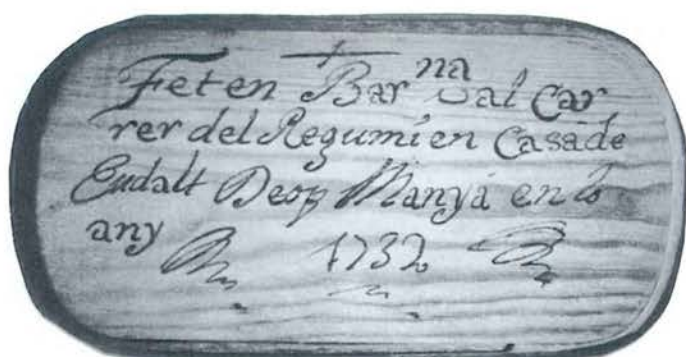 Fet en Barna al Car
rer del Regumi en Casa de
Eudalt Deop Manyá en lo
any 1732